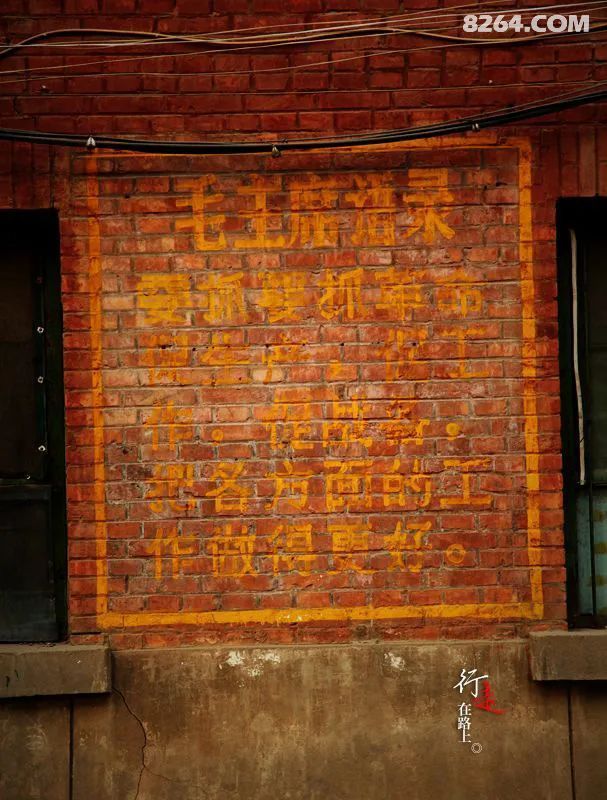 8264.COM
毛主席语录
要抓抓革命
促生产，促工
作，促战备，
把各方面的工
作做得更好。
行走
在路上